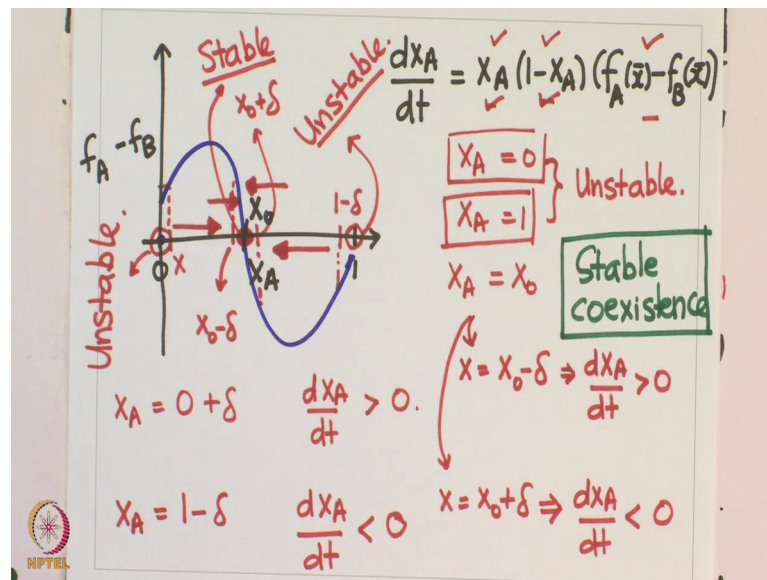 Stable
Unstable.
dx_A/dt = x_A (1-x_A) (f_A(x̄)-f_B(x̄))
x₀+δ
f_A -f_B
x_A = 0
x_A = 1
Unstable.
x₀
1-δ
0
x
x_A
1
Unstable.
x₀-δ
x_A = x₀
Stable
coexistence
x = x₀-δ ⇒ dx_A/dt >0
x_A = 0+δ dx_A/dt > 0.
x_A = 1-δ dx_A/dt < 0
x = x₀+δ ⇒ dx_A/dt < 0
NPTEL